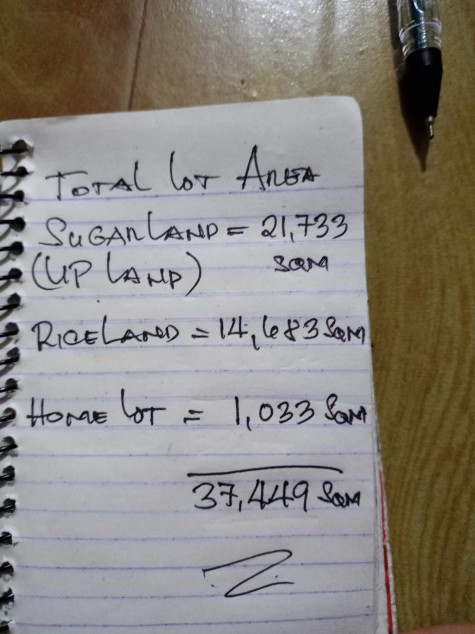 TOTAL LOT AREA
SUGARLAND = 21,733
(UP LAND) SQM
RICELAND = 14,683 SQM
HOME LOT = 1,033 SQM
37,449 SQM